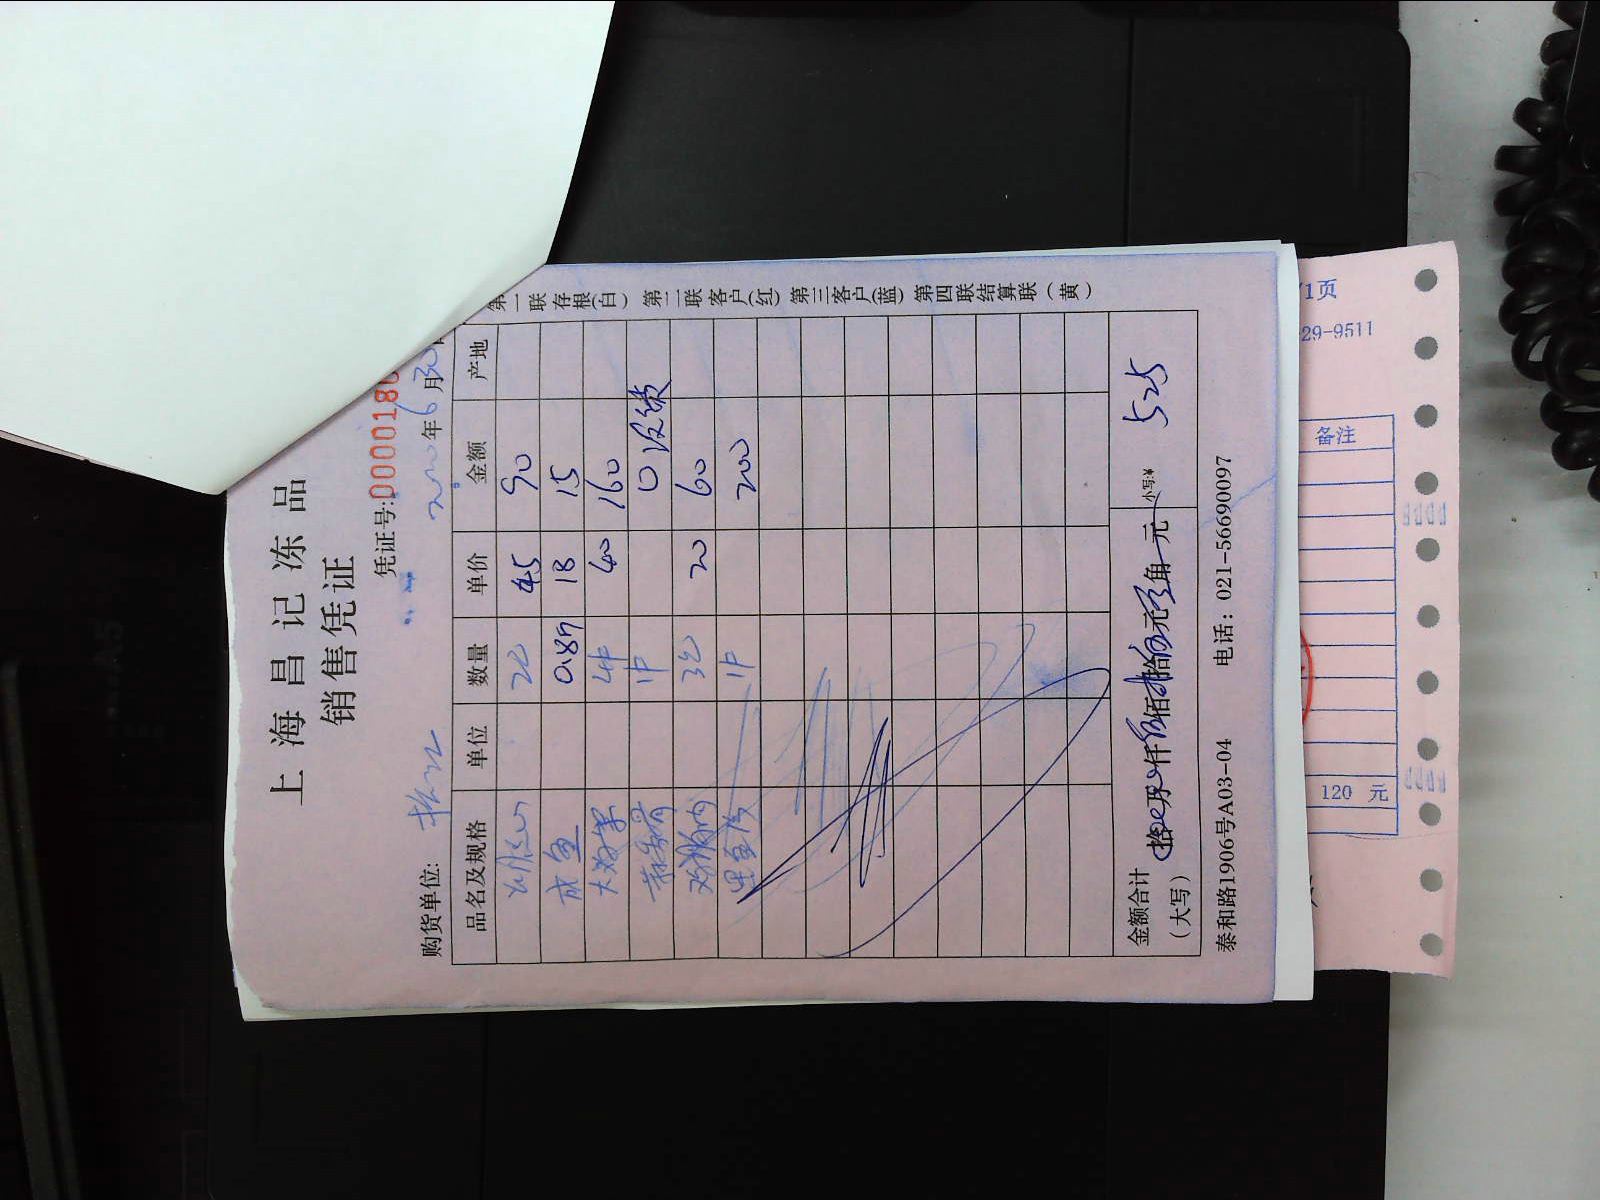 上海昌记冻品
销售凭证
凭证号:0000180
购货单位:
2020年6月30
品名及规格 单位 数量 单价 金额 产地
2 45 90
咸鱼 0.87 18 15
4件 40 160
1件 0 反馈
3包 20 60
1件 200
金额合计(大写) 拾 万 仟伍佰贰拾伍元零角 元 小写:¥ 525
泰和路1906号A03-04 电话:021-56690097
第一联存根(白) 第二联客户(红) 第三客户(蓝) 第四联结算联(黄)
/1页
29-9511
备注
120 元